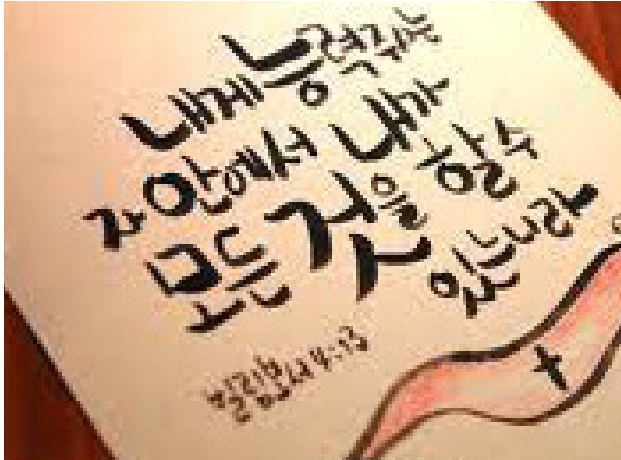 내게 능력주시는
자 안에서 내가
모든 것을 할수
있느니라
빌립보서 4:13